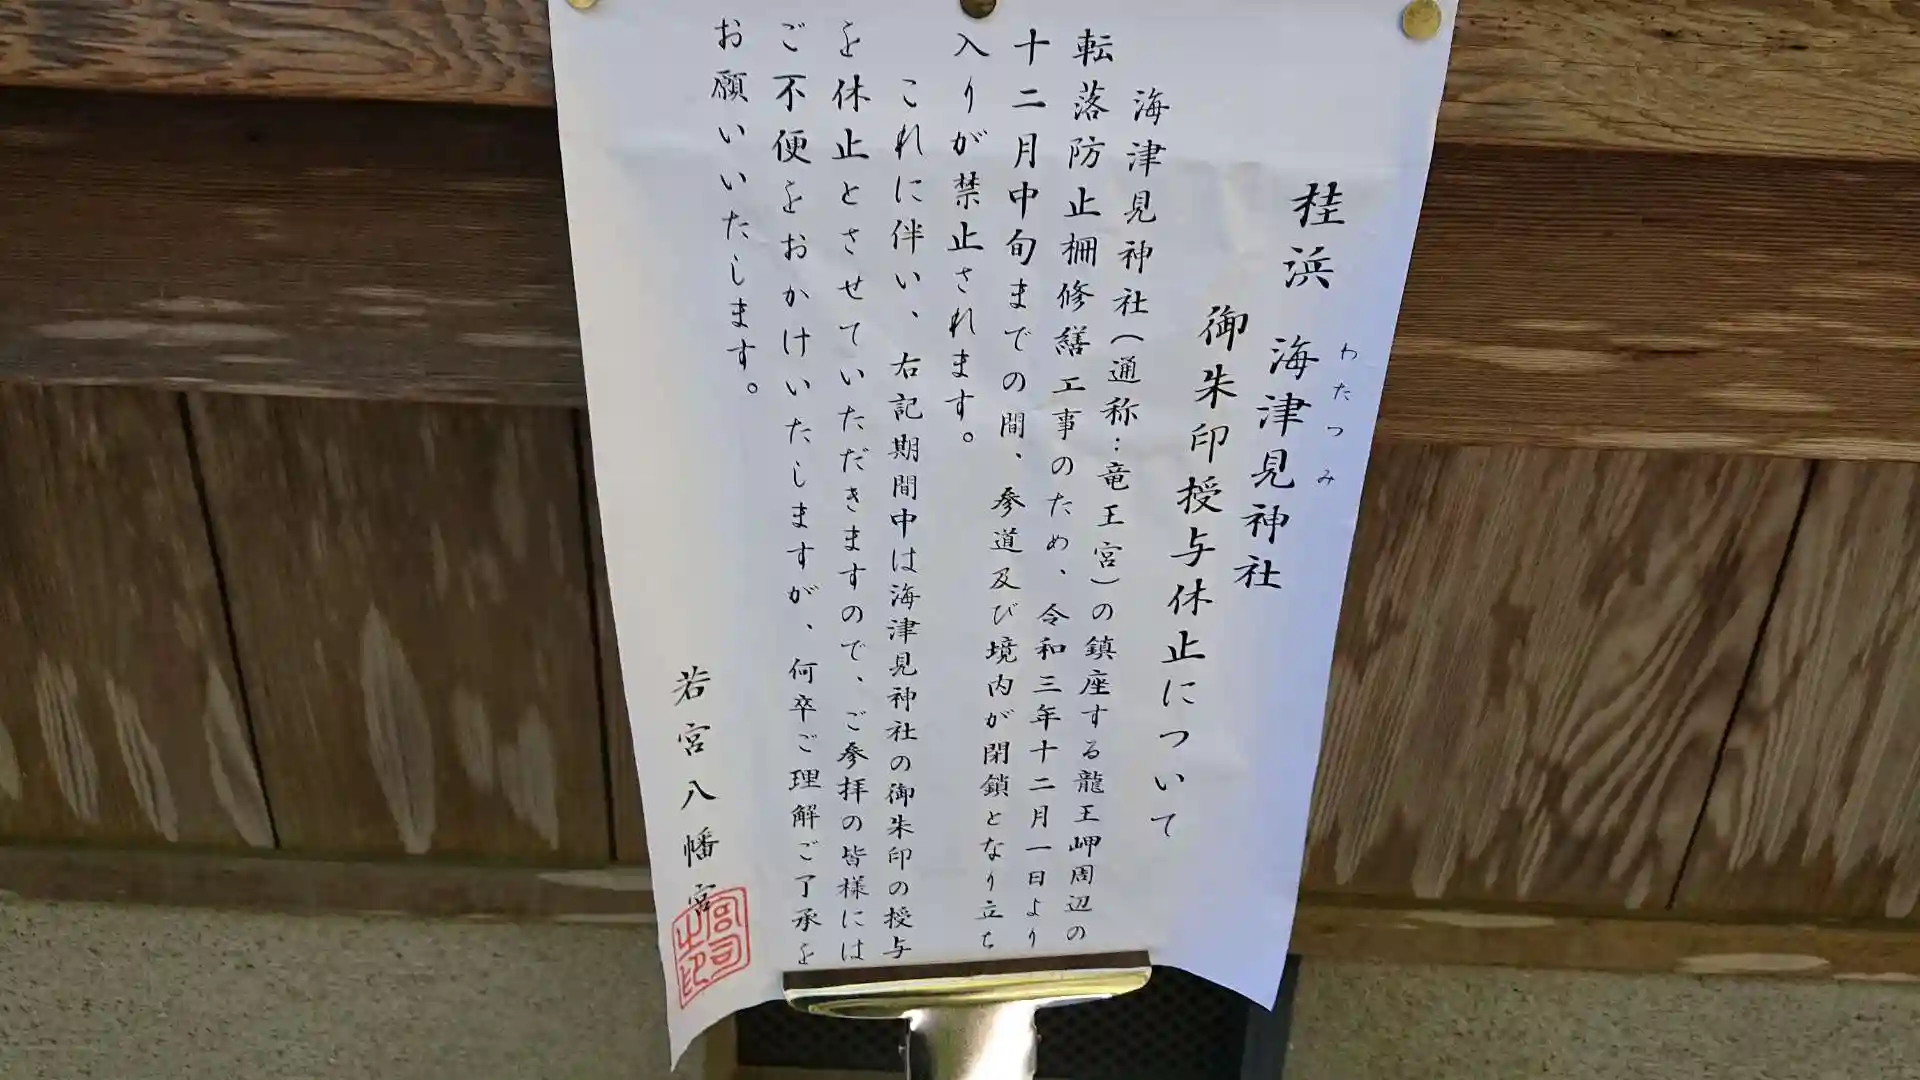 桂浜 海津見神社
わたつみ
御朱印授与休止について
海津見神社(通称:竜王宮)の鎮座する龍王岬周辺の
転落防止柵修繕工事のため、令和三年十二月一日より
十二月中旬までの間、参道及び境内が閉鎖となり立ち
入りが禁止されます。
これに伴い、右記期間中は海津見神社の御朱印の授与
を休止とさせていただきますので、ご参拝の皆様には
ご不便をおかけいたしますが、何卒ご理解ご了承を
お願いいたします。
若宮八幡宮
宮司之印